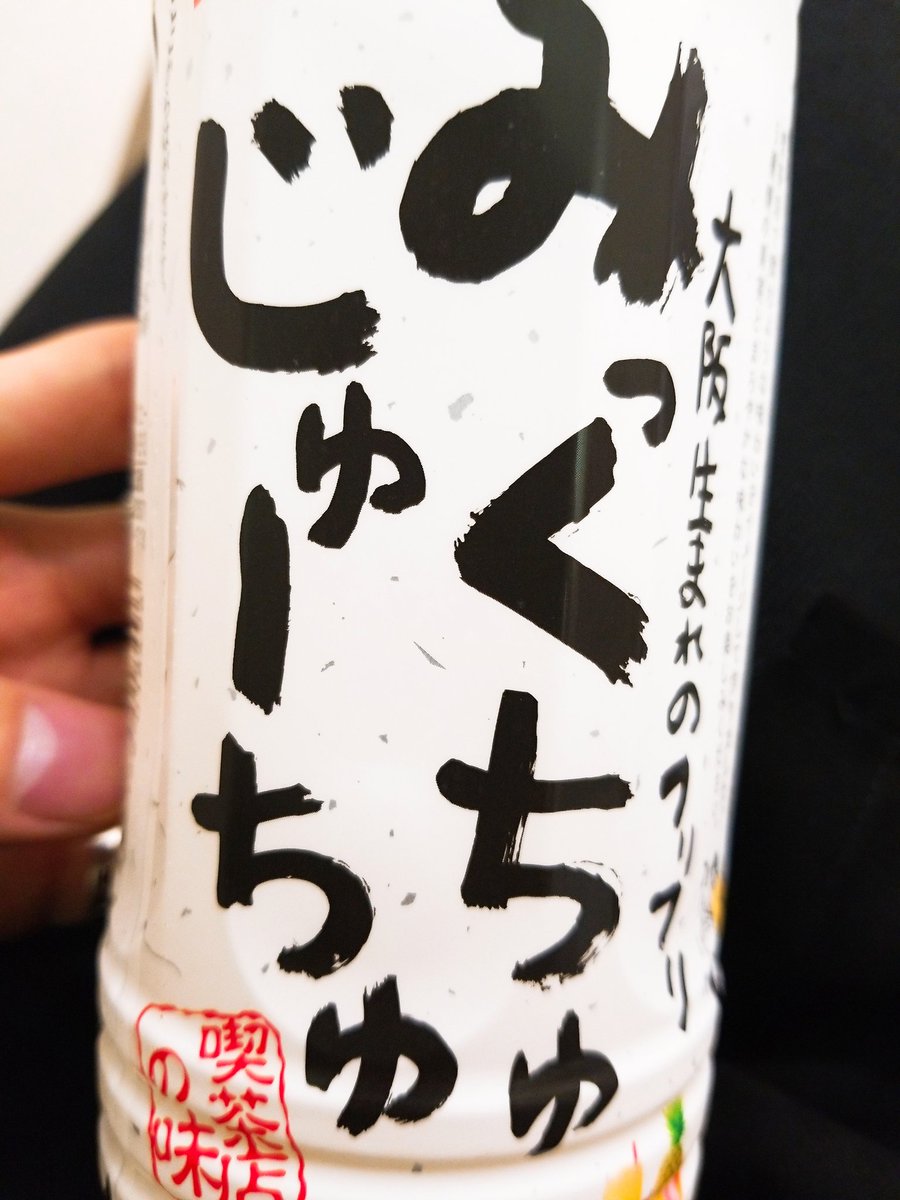 大阪生まれのフリフリ
みっくちゅ
じゅーちゅ
喫茶店
の味